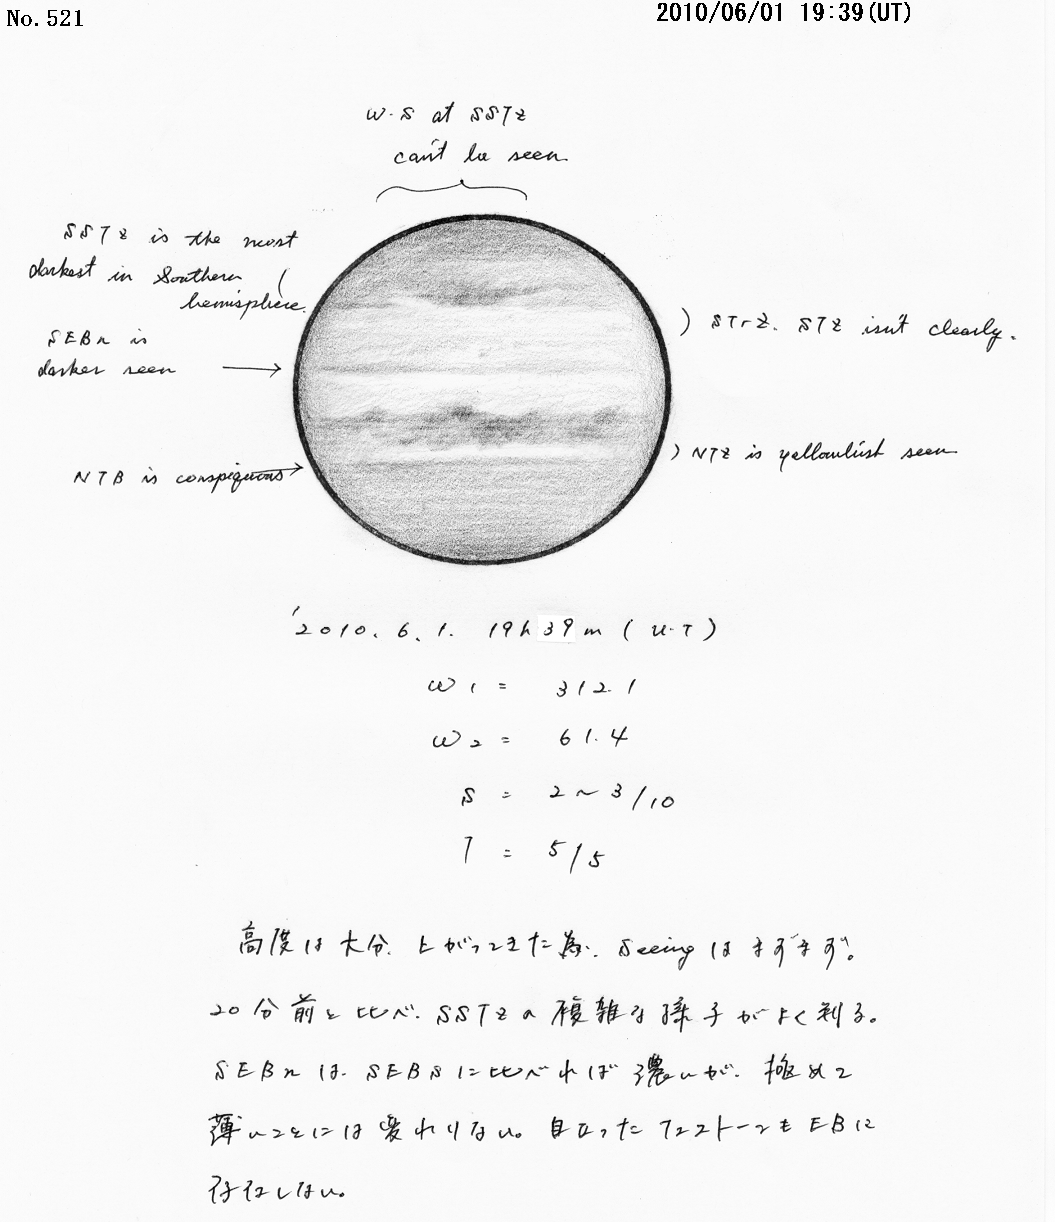 No.521
2010/06/01 19:39(UT)
W.S at SSTZ
can't be seen
SSTZ is the most
darkest in Southern
hemisphere.
SEBn is
darker seen
NTB is conspiquous
STrZ. STZ isn't clearly.
NTZ is yellowlish seen
'2010. 6. 1. 19h 39m (U.T)
ω1 = 312.1
ω2 = 61.4
S = 2~3/10
T = 5/5
高度は大分、上がってきた為、Seeingはまずまず。
20分前と比べ、SSTZの複雑な様子がよく判る。
SEBnは、SEBsに比べれば濃いが、極めて
薄いことには変わりない。目立ったフェストーンもEBに
存在しない。